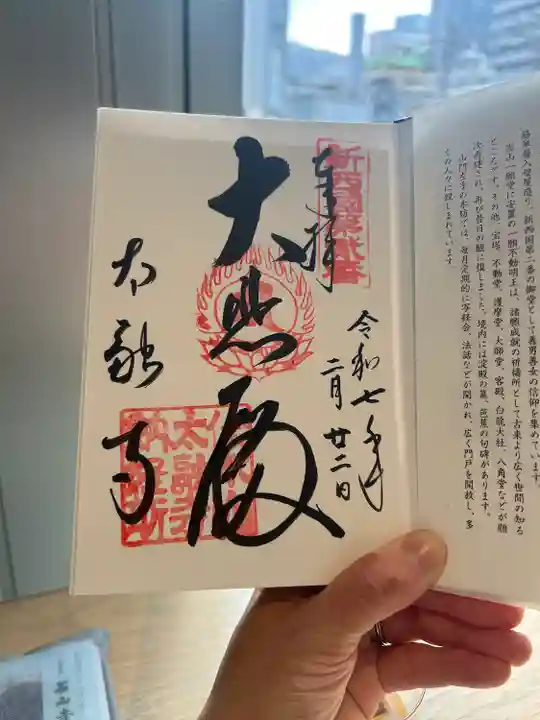 鉢単層入母屋造り、新西国第二番の御堂として善男善女の信仰を集めています。
当山一願堂に安置の一願不動明王は、諸願成就の祈祷所として古来より広く世間の知る
ところです。その他、宝塔、不動堂、護摩堂、大師堂、客殿、白龍大社、八角堂などが順
次再建され、再び昔日の観に復しました。境内には淀殿の墓、芭蕉の句碑があります。
山門左手の本坊では、毎月定期的に写経会、法話などが開かれ、広く門戸を開放し、多
くの人々に親しまれています
令和七年
二月廿二日
奉拝
新西國第貳番
大悲殿
太融寺
太融寺
納経所